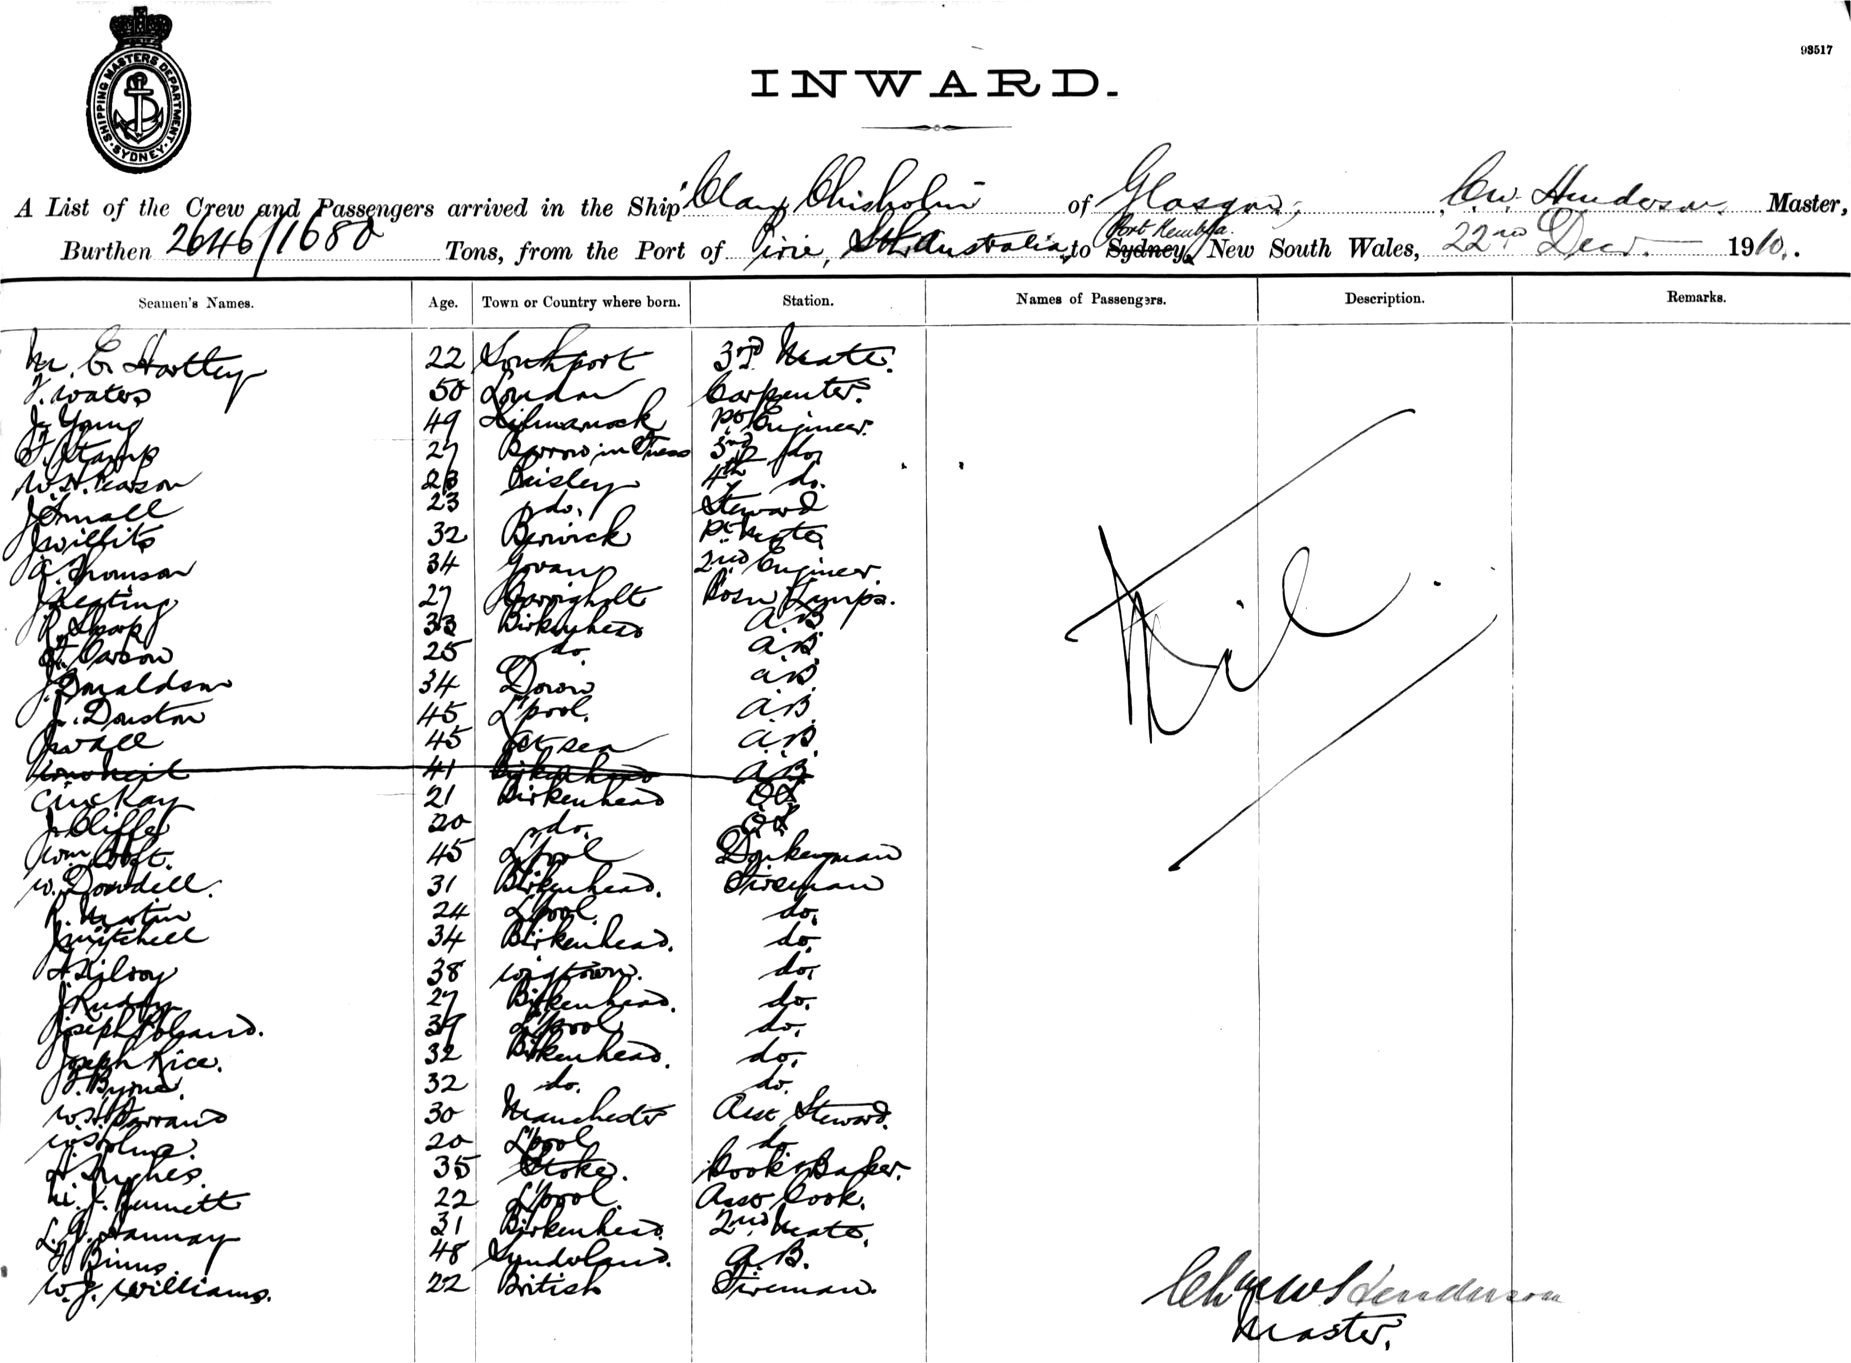 93517
SHIPPING MASTERS DEPARTMENT. SYDNEY.
INWARD.
A List of the Crew and Passengers arrived in the Ship "Clan Chisholm of Glasgow, C.W. Henderson. Master,
Port Kembla.
Burthen 2646/1680 Tons, from the Port of Pirie, Sth Australia, to Sydney, New South Wales, 22nd Decr. 1910.
Seamen's Names. Age. Town or Country where born. Station. Names of Passengers. Description. Remarks.
M. C. Hartley 22 Southport 3rd Mate.
T. Waters 50 London Carpenter.
J. Young 49 Kilmarnock 1st Engineer.
F. Stamp 27 Barrow in Furness 3rd do.
W. H. Pearson 23 Paisley 4th do.
J Small 23 do. Steward
J Willits 32 Berwick 1st Mate
A. Thomson 34 Govan 2nd Engineer.
J Keating 27 Carrigholt Bosn Lamps.
R. Sharp 33 Birkenhead A.B.
Carson 25 do. A.B.
J. Donaldson 34 Down A.B.
J. Douston 45 L'pool. A.B.
J Wall 45 At sea A.B.
41 Birkenhead A.B.
C McKay 21 Birkenhead O.S.
J. Cliffe 20 do. O.S.
Wm 45 L'pool Donkeyman
W. Dowdell. 31 Birkenhead. Fireman
R. Martin 24 L'pool. do.
J Mitchell 34 Birkenhead. do.
Kilroy 38 Wigtown. do.
J. Ruddy 27 Birkenhead. do.
Joseph Boland. 39 L'pool do.
Joseph Rice. 32 Birkenhead. do.
Byrne. 32 do. do.
W. H. Farrand 30 Manchester Asst Steward.
W. 20 L'pool do
H. Hughes. 35 Stoke. Cook & Baker.
M. J. Bennett 22 L'pool. Asst Cook.
L. Hannay 31 Birkenhead. 2nd Mate.
Binns. 48 Sunderland. A.B.
W. J. Williams. 22 British Fireman.
Nil.
Chas W Henderson
Master.